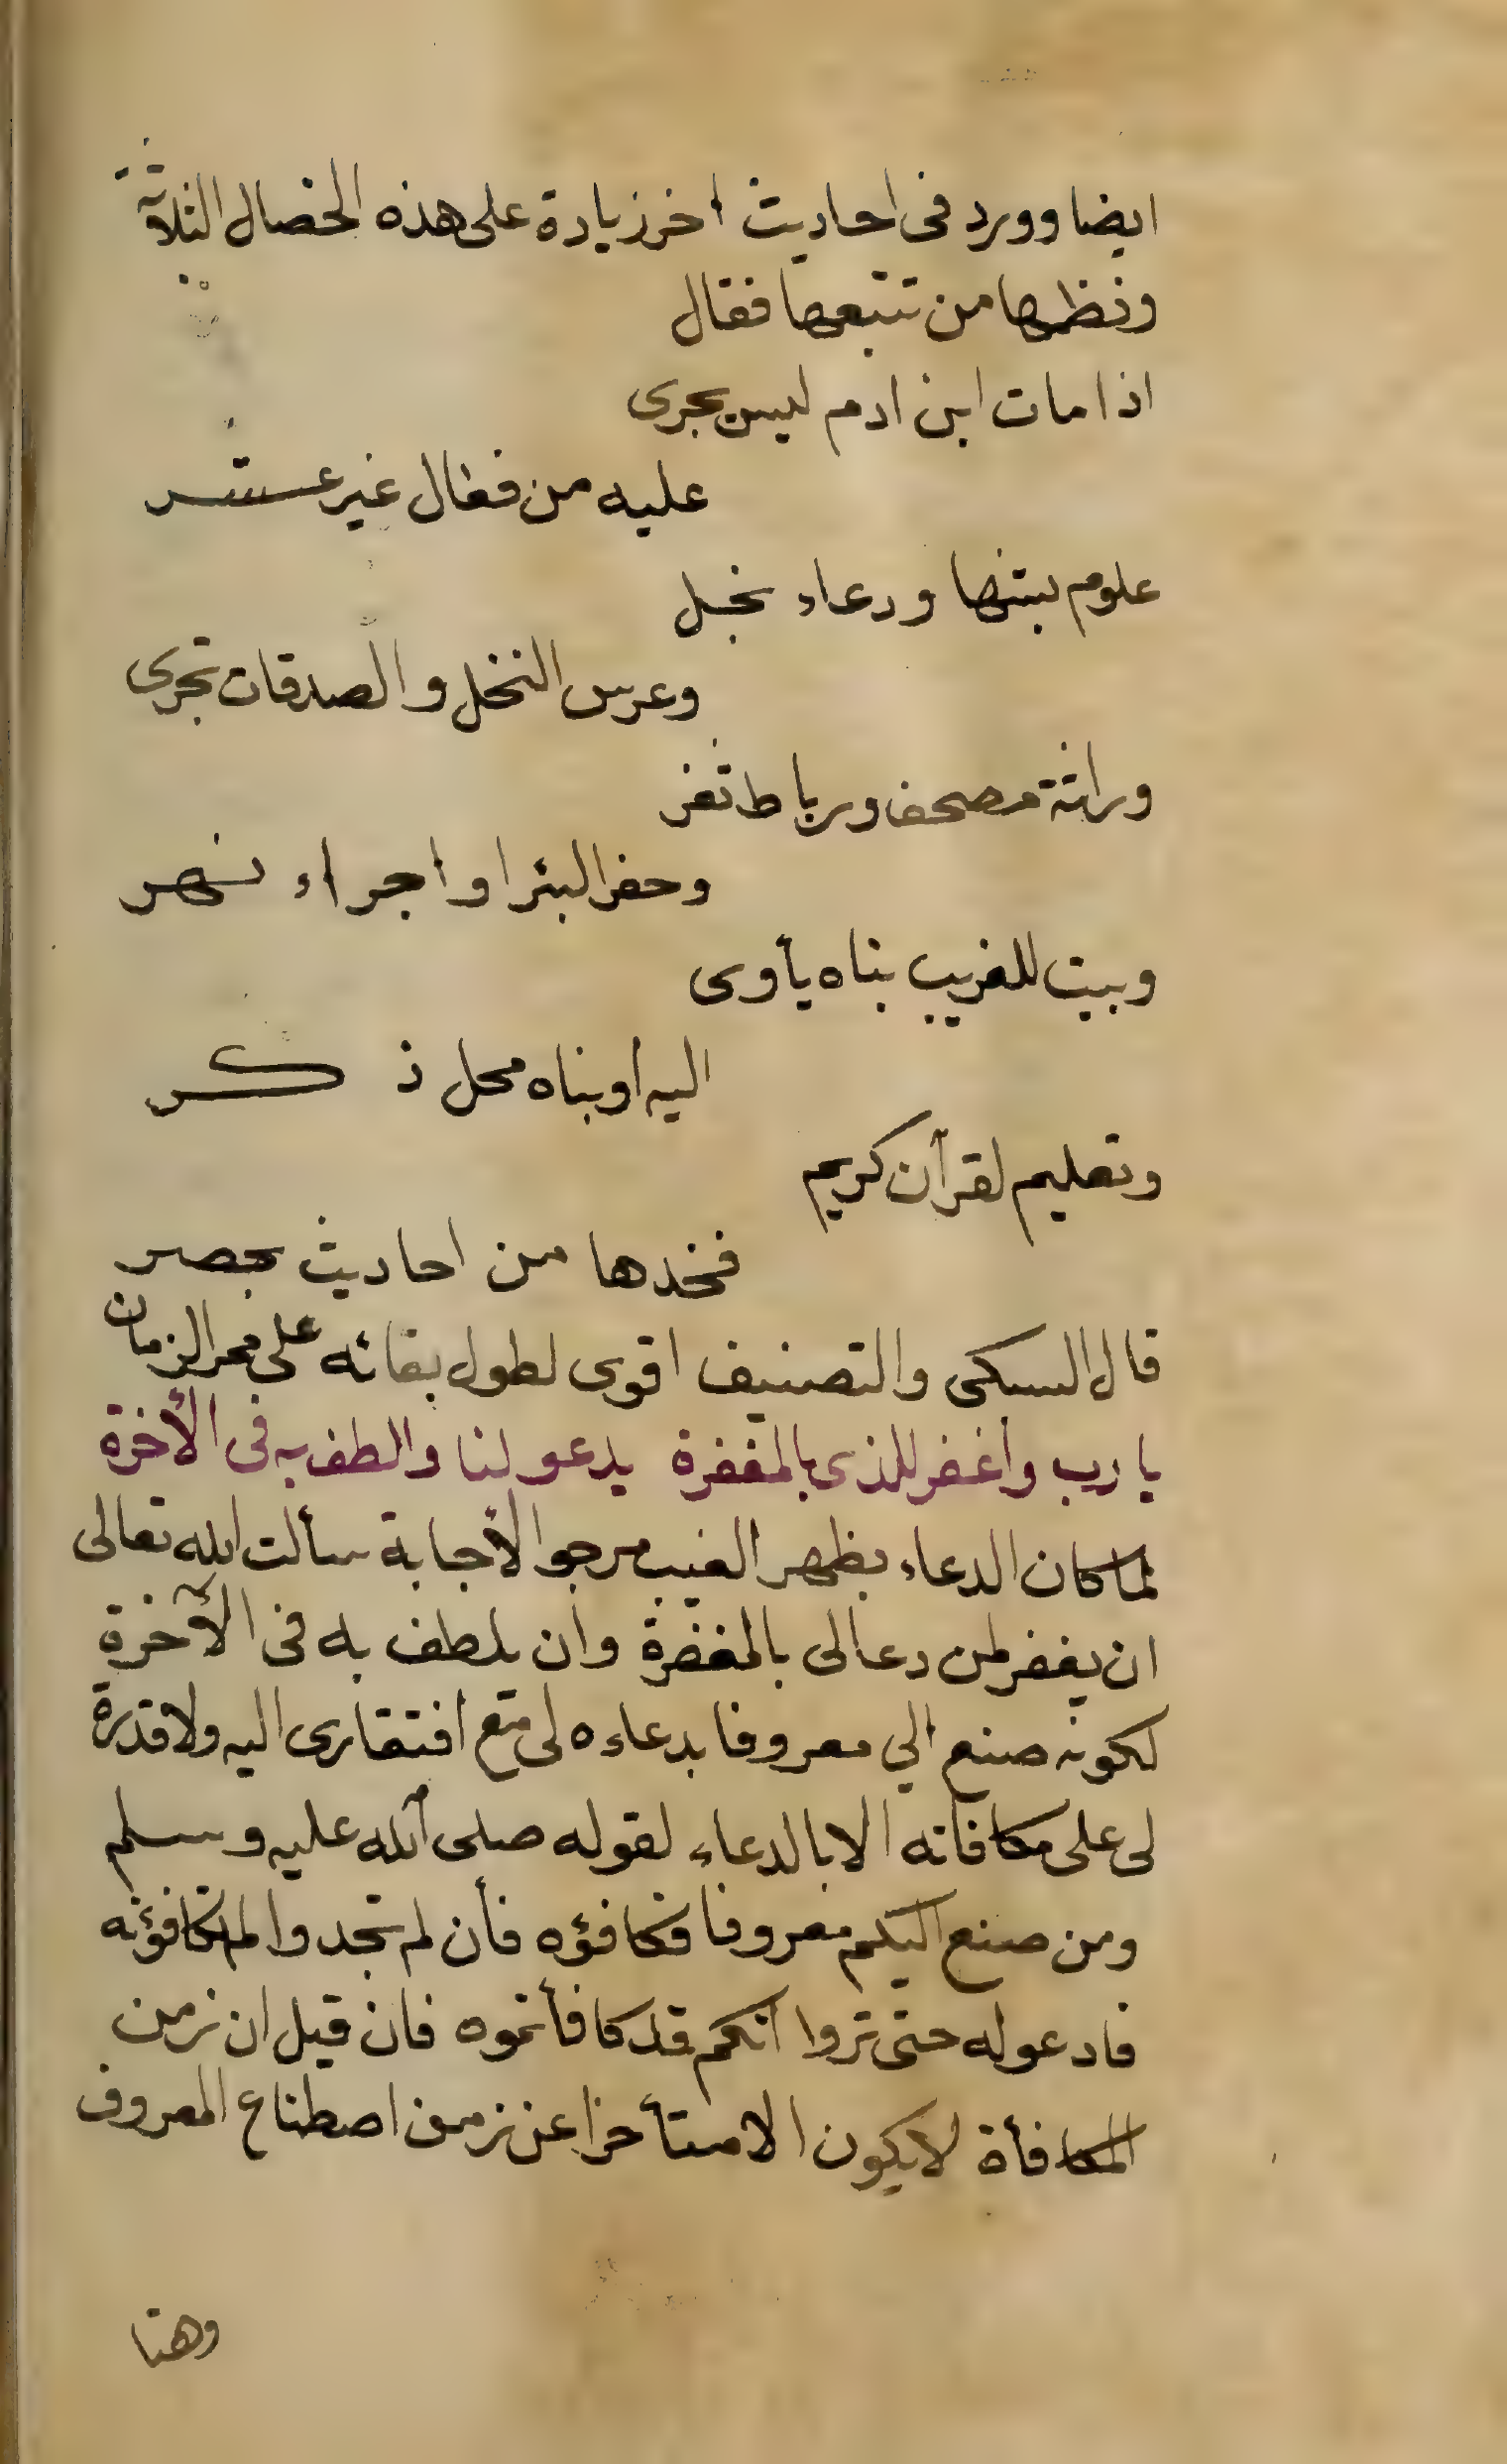 ايضا وورد فى احاديث اخر زيادة على هذه الخصال الثلاثة
ونظمها من تتبعها فقال
اذا مات ابن ادم ليس يجرى
عليه من فعال غير عشر
علوم بثها ودعاء نجل
وغرس النخل والصدقات تجرى
وراثة مصحف ورباط ثغر
وحفر البئر او اجراء نهر
وبيت للغريب بناه يأوى
اليه او بناه محل ذكر
وتعليم لقرآن كريم
فخذها من احاديث بحصر
قال السبكى والتصنيف اقوى لطول بقائه على ممر الزمان
يا رب واغفر للذى بالمغفرة يدعو لنا والطف به فى الأخرة
لما كان الدعاء بظهر الغيب مرجو الأجابة سألت الله تعالى
ان يغفر لمن دعا لى بالمغفرة وان يلطف به فى الآخرة
لكونه صنع الي معروفا بدعاءه لى مع افتقارى اليه ولا قدرة
لى على مكافاته الا بالدعاء لقوله صلى الله عليه وسلم
ومن صنع اليكم معروفا فكافؤه فأن لم تجدوا لمتكافؤنه
فادعوله حتى تروا انكم قد كافأتموه فان قيل ان زمن
المكافأة لا يكون الا متأخرا عن زمن اصطناع المعروف
وهنا